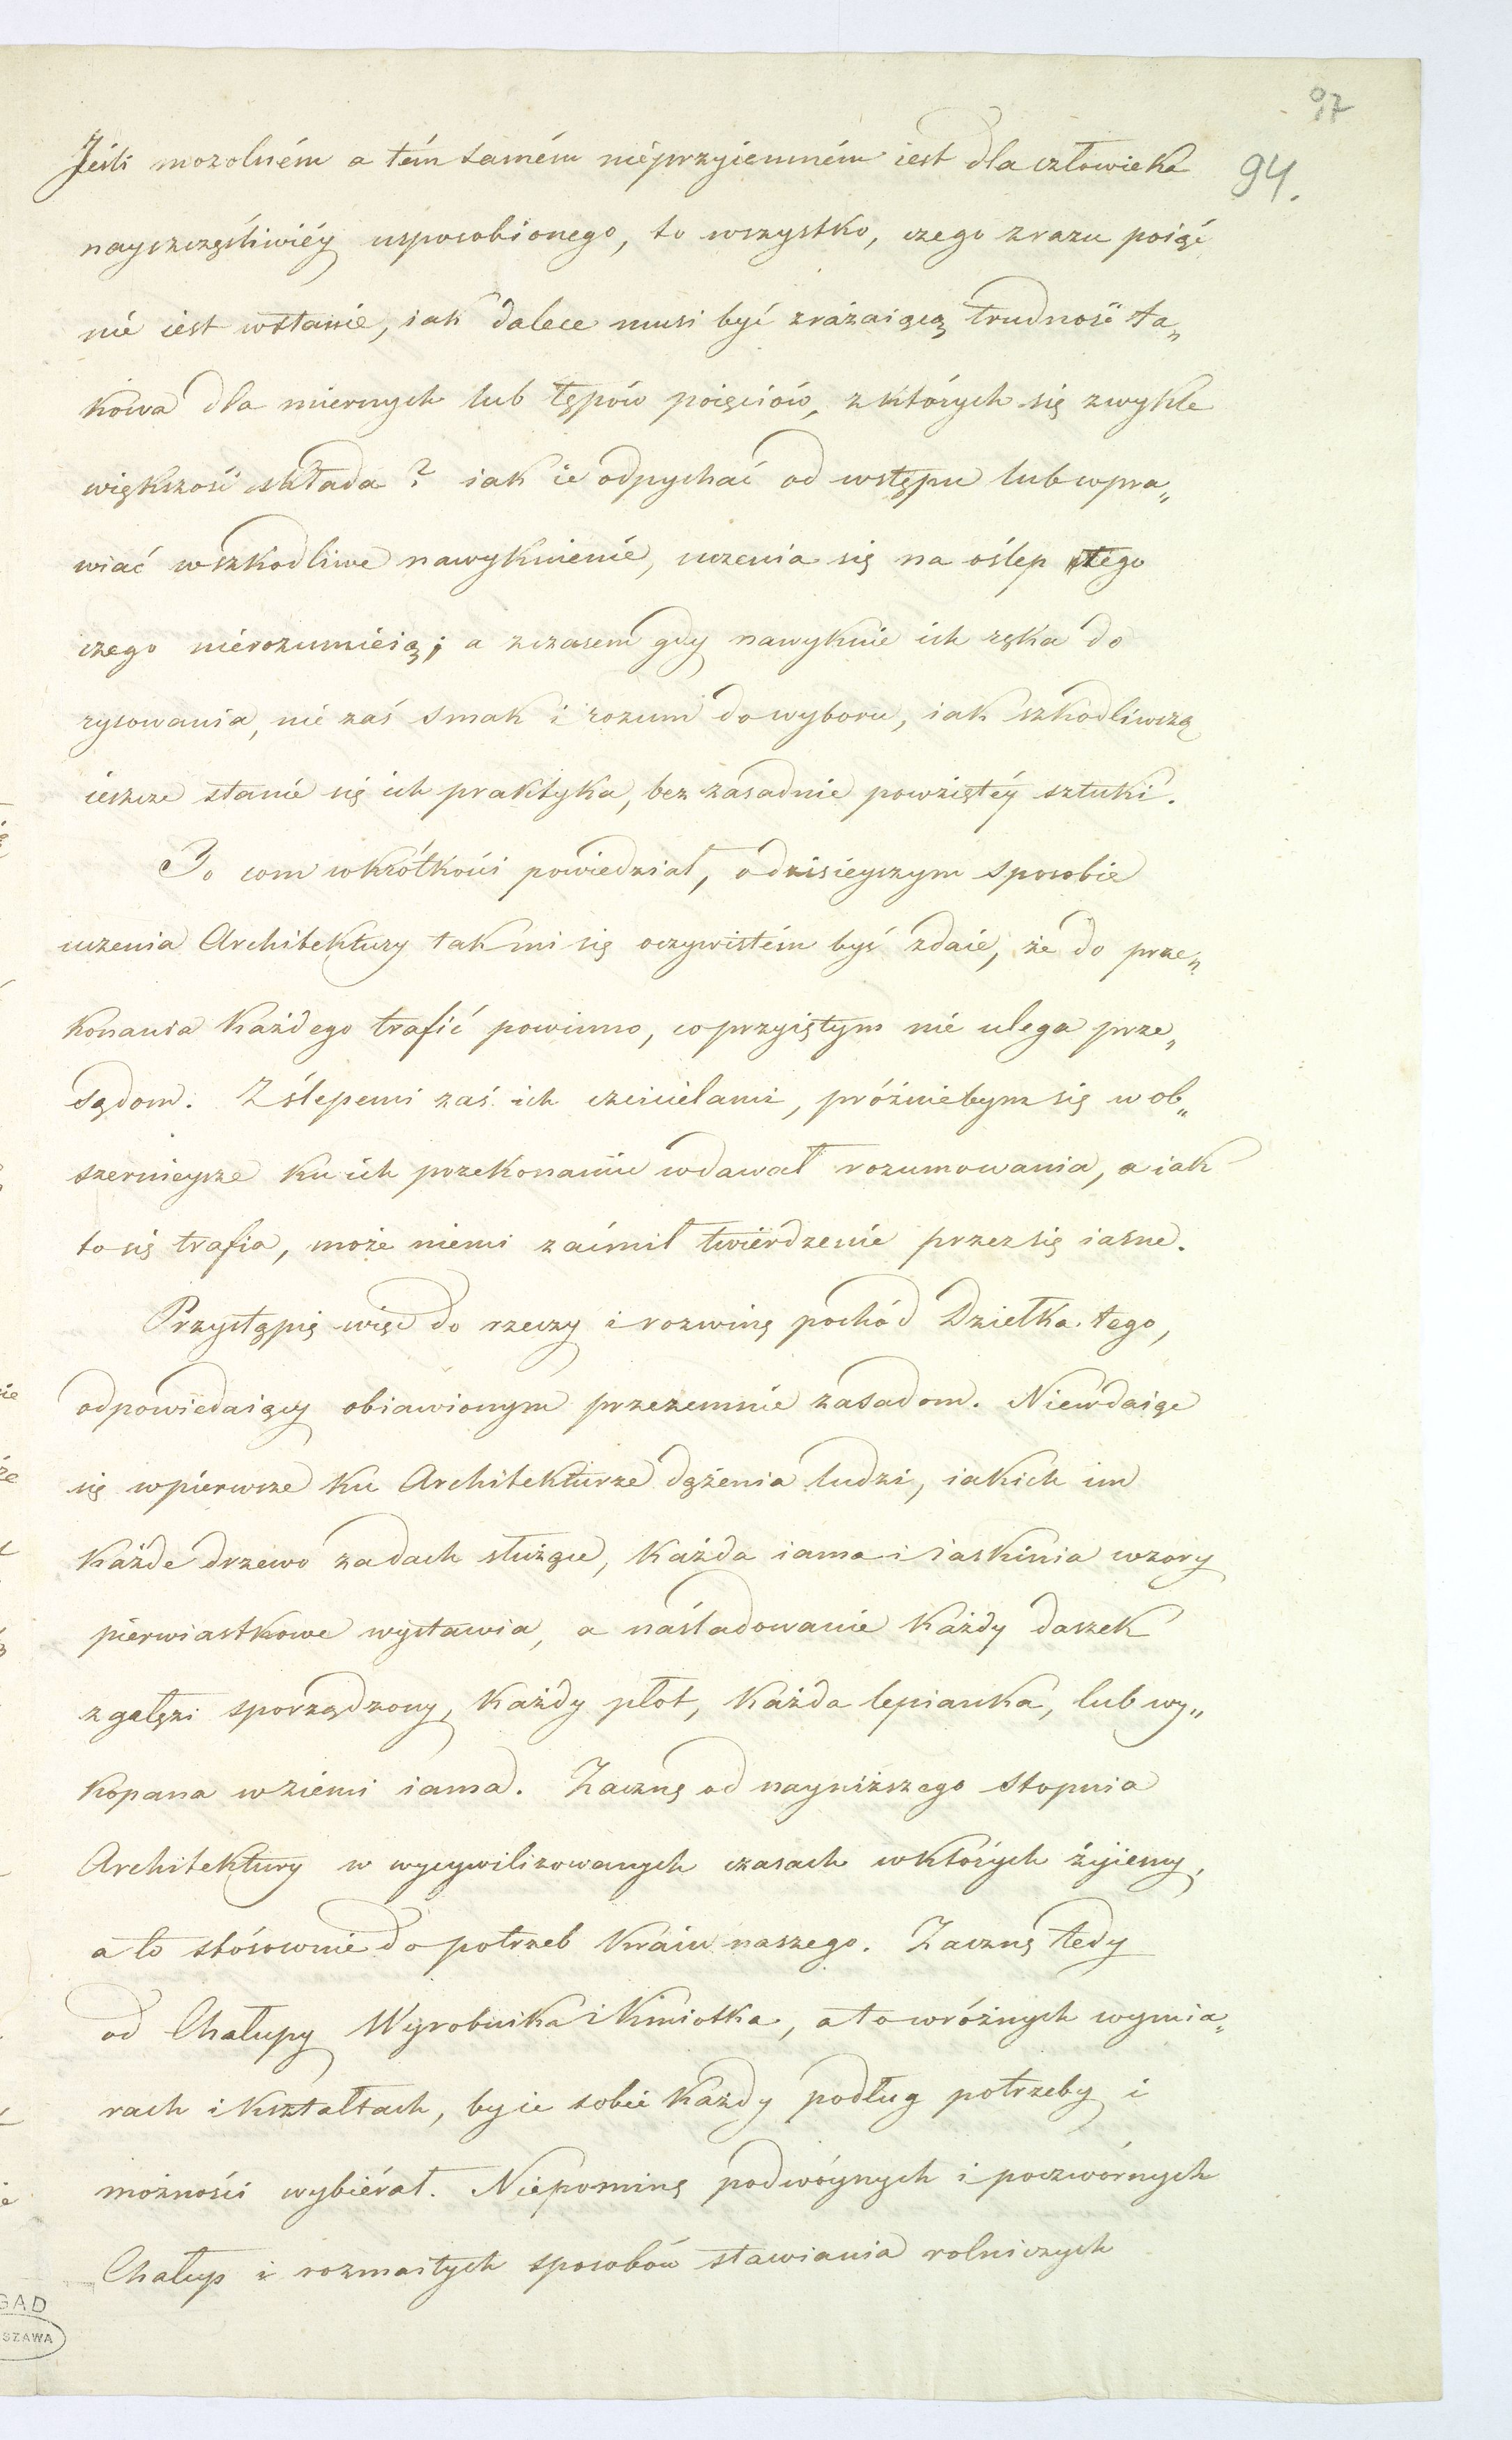 97
94.
Jeśli mozolném a tém samém nieprzyiemném iest dla człowieka
nayszczęśliwiéy usposobionego, to wszystko, czego zrazu poiąć
nie iest wstanie, iak dalece musi być zrażaiącą trudność ta„
kowa dla miernych lub tępów poięciów, z których się zwykle
większość składa? iak ie odpychać od wstępu lub wpra„
wiać w szkodliwe nawyknienie, uczenia się na oślep tego
czego nierozumieią; a z czasem gdy nawyknie ich ręka do
rysowania, nie zaś smak i rozum do wyboru, iak szkodliwszą
ieszcze stanie się ich praktyka, bez zasadnie powziętéy sztuki.
To com wkrótkości powiedział, o dzisieyszym sposobie
uczenia Architektury tak mi się oczywistém być zdaie, że do prze„
konania każdego trafić powinno, co przyiętym nie ulega prze„
sądom. Z ślepemi zaś ich czcicielami, próżnie bym się w ob„
szernieysze ku ich przekonaniu wdawał rozumowania, a iak
to się trafia, może niemi zaćmił twierdzenie przez się iasne.
Przystąpię więc do rzeczy i rozwinę pochód Dziełka tego,
odpowiedaiący obiawionym przezemnie zasadom. Niewdaiąc
się wpierwsze ku Architekturze dążenia ludzi, iakich im
każde drzewo za dach służące, każda iama i iaskinia wzory
pierwiastkowe wystawia, a naśladowanie każdy daszek
z gałęzi sporządzony, każdy płot, każda lepianka, lub wy„
kopana w ziemi iama. Zacznę od nayniższego stopnia
Architektury w wycywilizowanych czasach w których żyiemy,
a to stósownie do potrzeb kraiu naszego. Zacznę tedy
od Chałupy Wyrobnika i Kmiotka, a to w różnych wymia„
rach i kształtach, by ie sobie każdy podług potrzeby i
możności wybiérał. Niepominę podwóynych i poczwórnych
Chałup i rozmaitych sposobów stawiania rolniczych
GAD
SZAWA